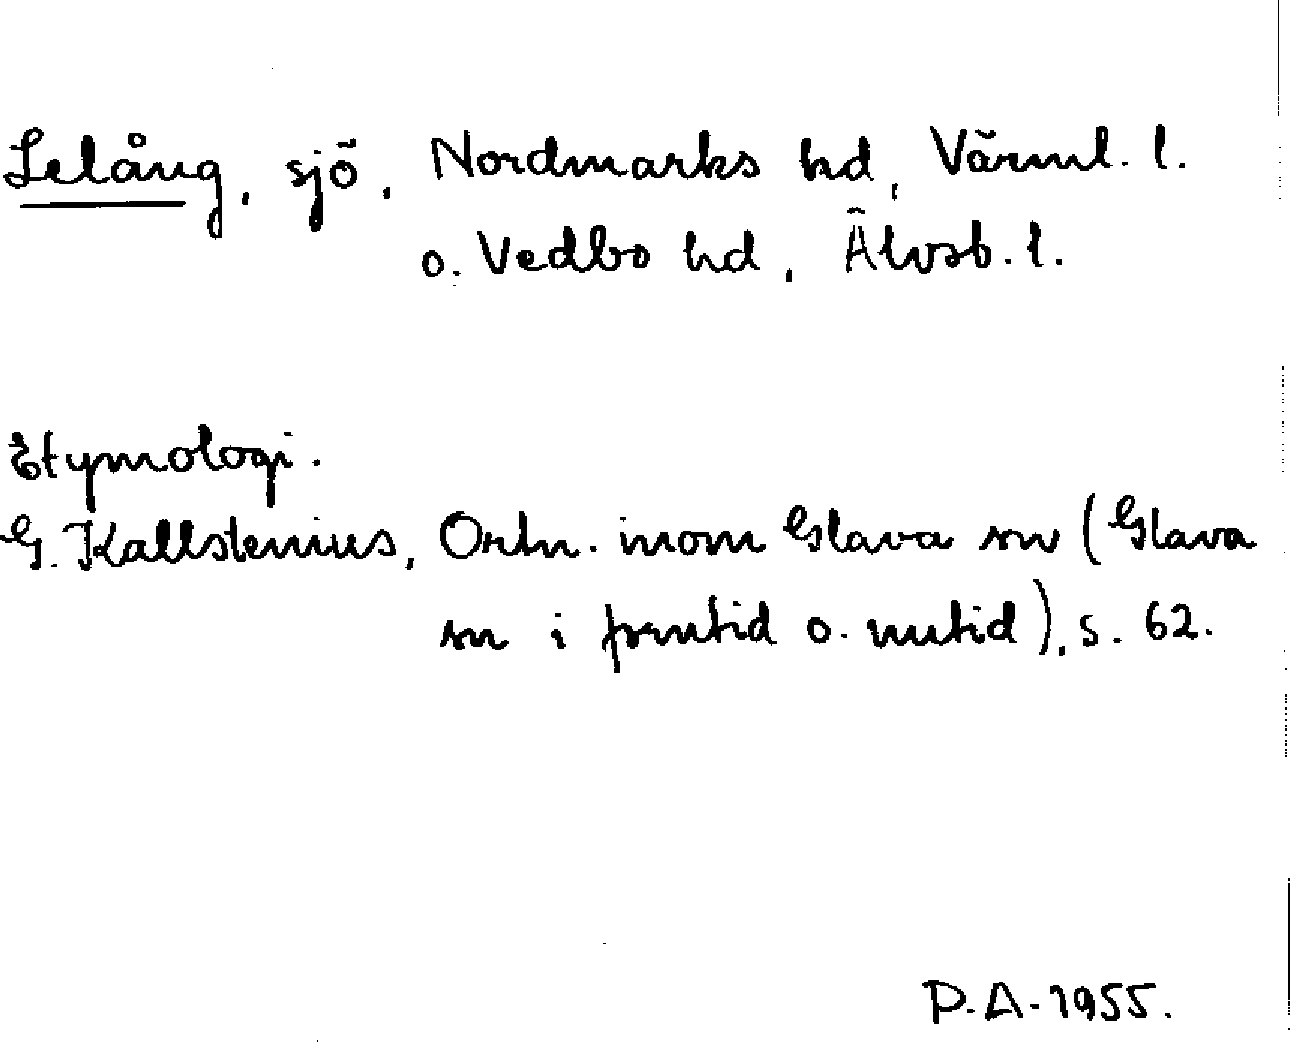 Lelång, sjö, Nordmarks hd, Värml. l.
o. Vedbo hd, Älvsb. l.
Etymologi.
G. Kallstenius, Ortn. inom Glava sn (Glava
sn i forntid o. nutid), s. 62.
P.A. 1955.